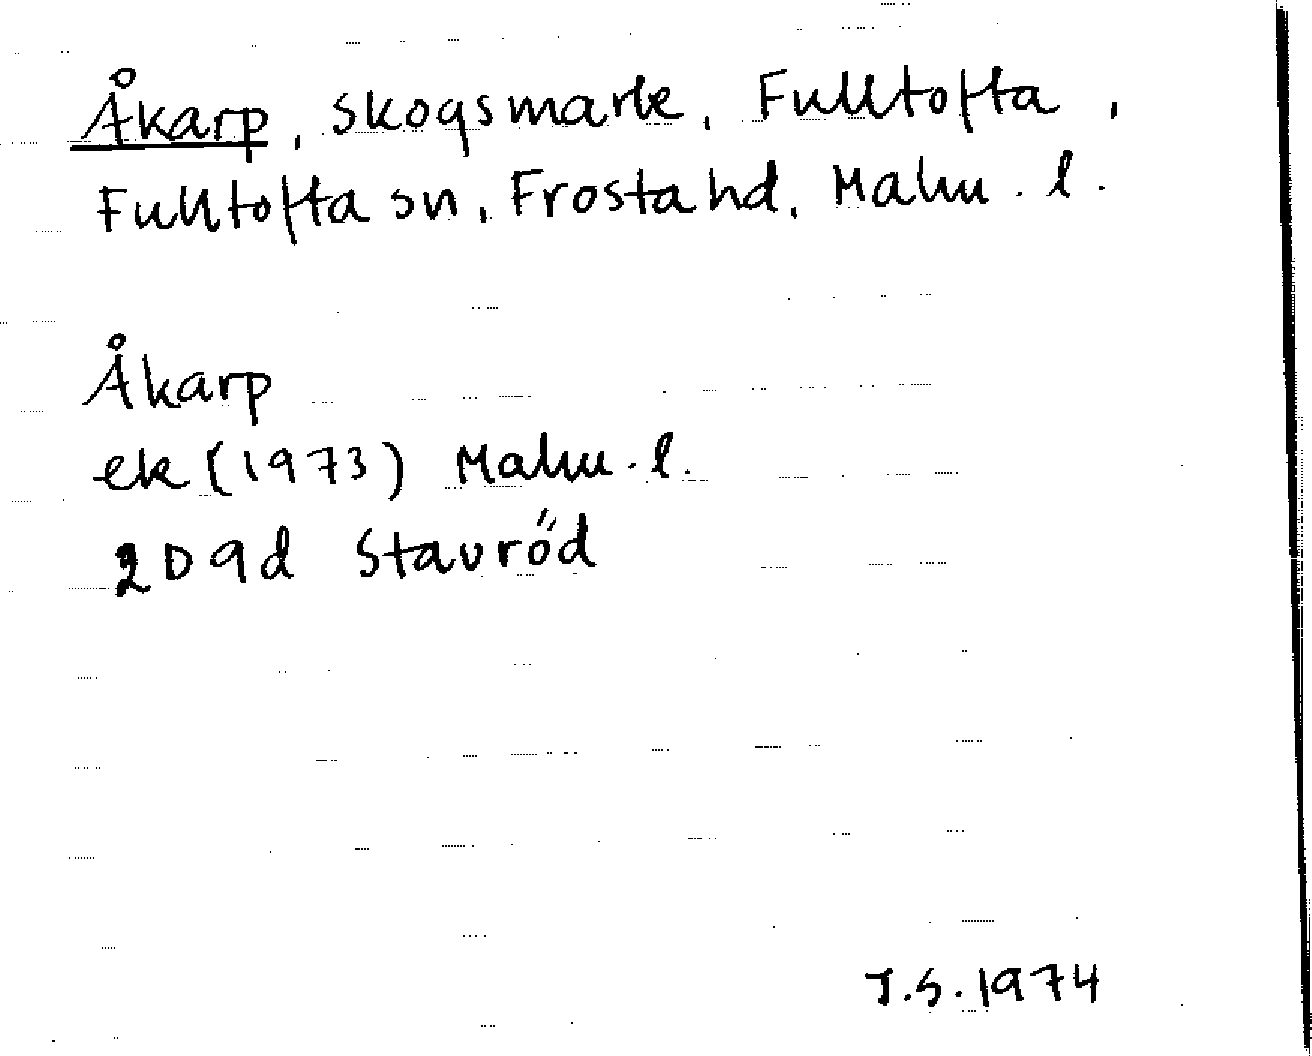 Åkarp, skogsmark, Fulltofta,
Fulltofta sn, Frosta hd, Malm. l.
Åkarp
ek (1973) Malm. l.
2D9d Stavröd
J.S. 1974